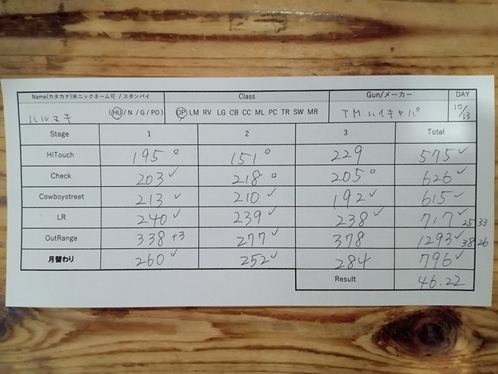 Name(カタカナ)※ニックネーム可 / スタンバイ Class Gun/メーカー DAY
ハルマキ (HU / N / G / PO) OP LM RV LG CB CC ML PC TR SW MR TMハイキャパ 10/13
Stage 1 2 3 Total
HiTouch 195 ° 151 ° 229 575 ✓
Check 203 ✓ 218 ° 205 ° 626 ✓
Cowboystreet 213 ✓ 210 ✓ 192 ✓ 615 ✓
LR 240 ✓ 239 ✓ 238 ✓ 717 ✓ 25 33
OutRange 338 +3 277 ✓ 378 1293 ✓ 38 26
月替わり 260 ✓ 252 ✓ 284 796 ✓
Result 46.22